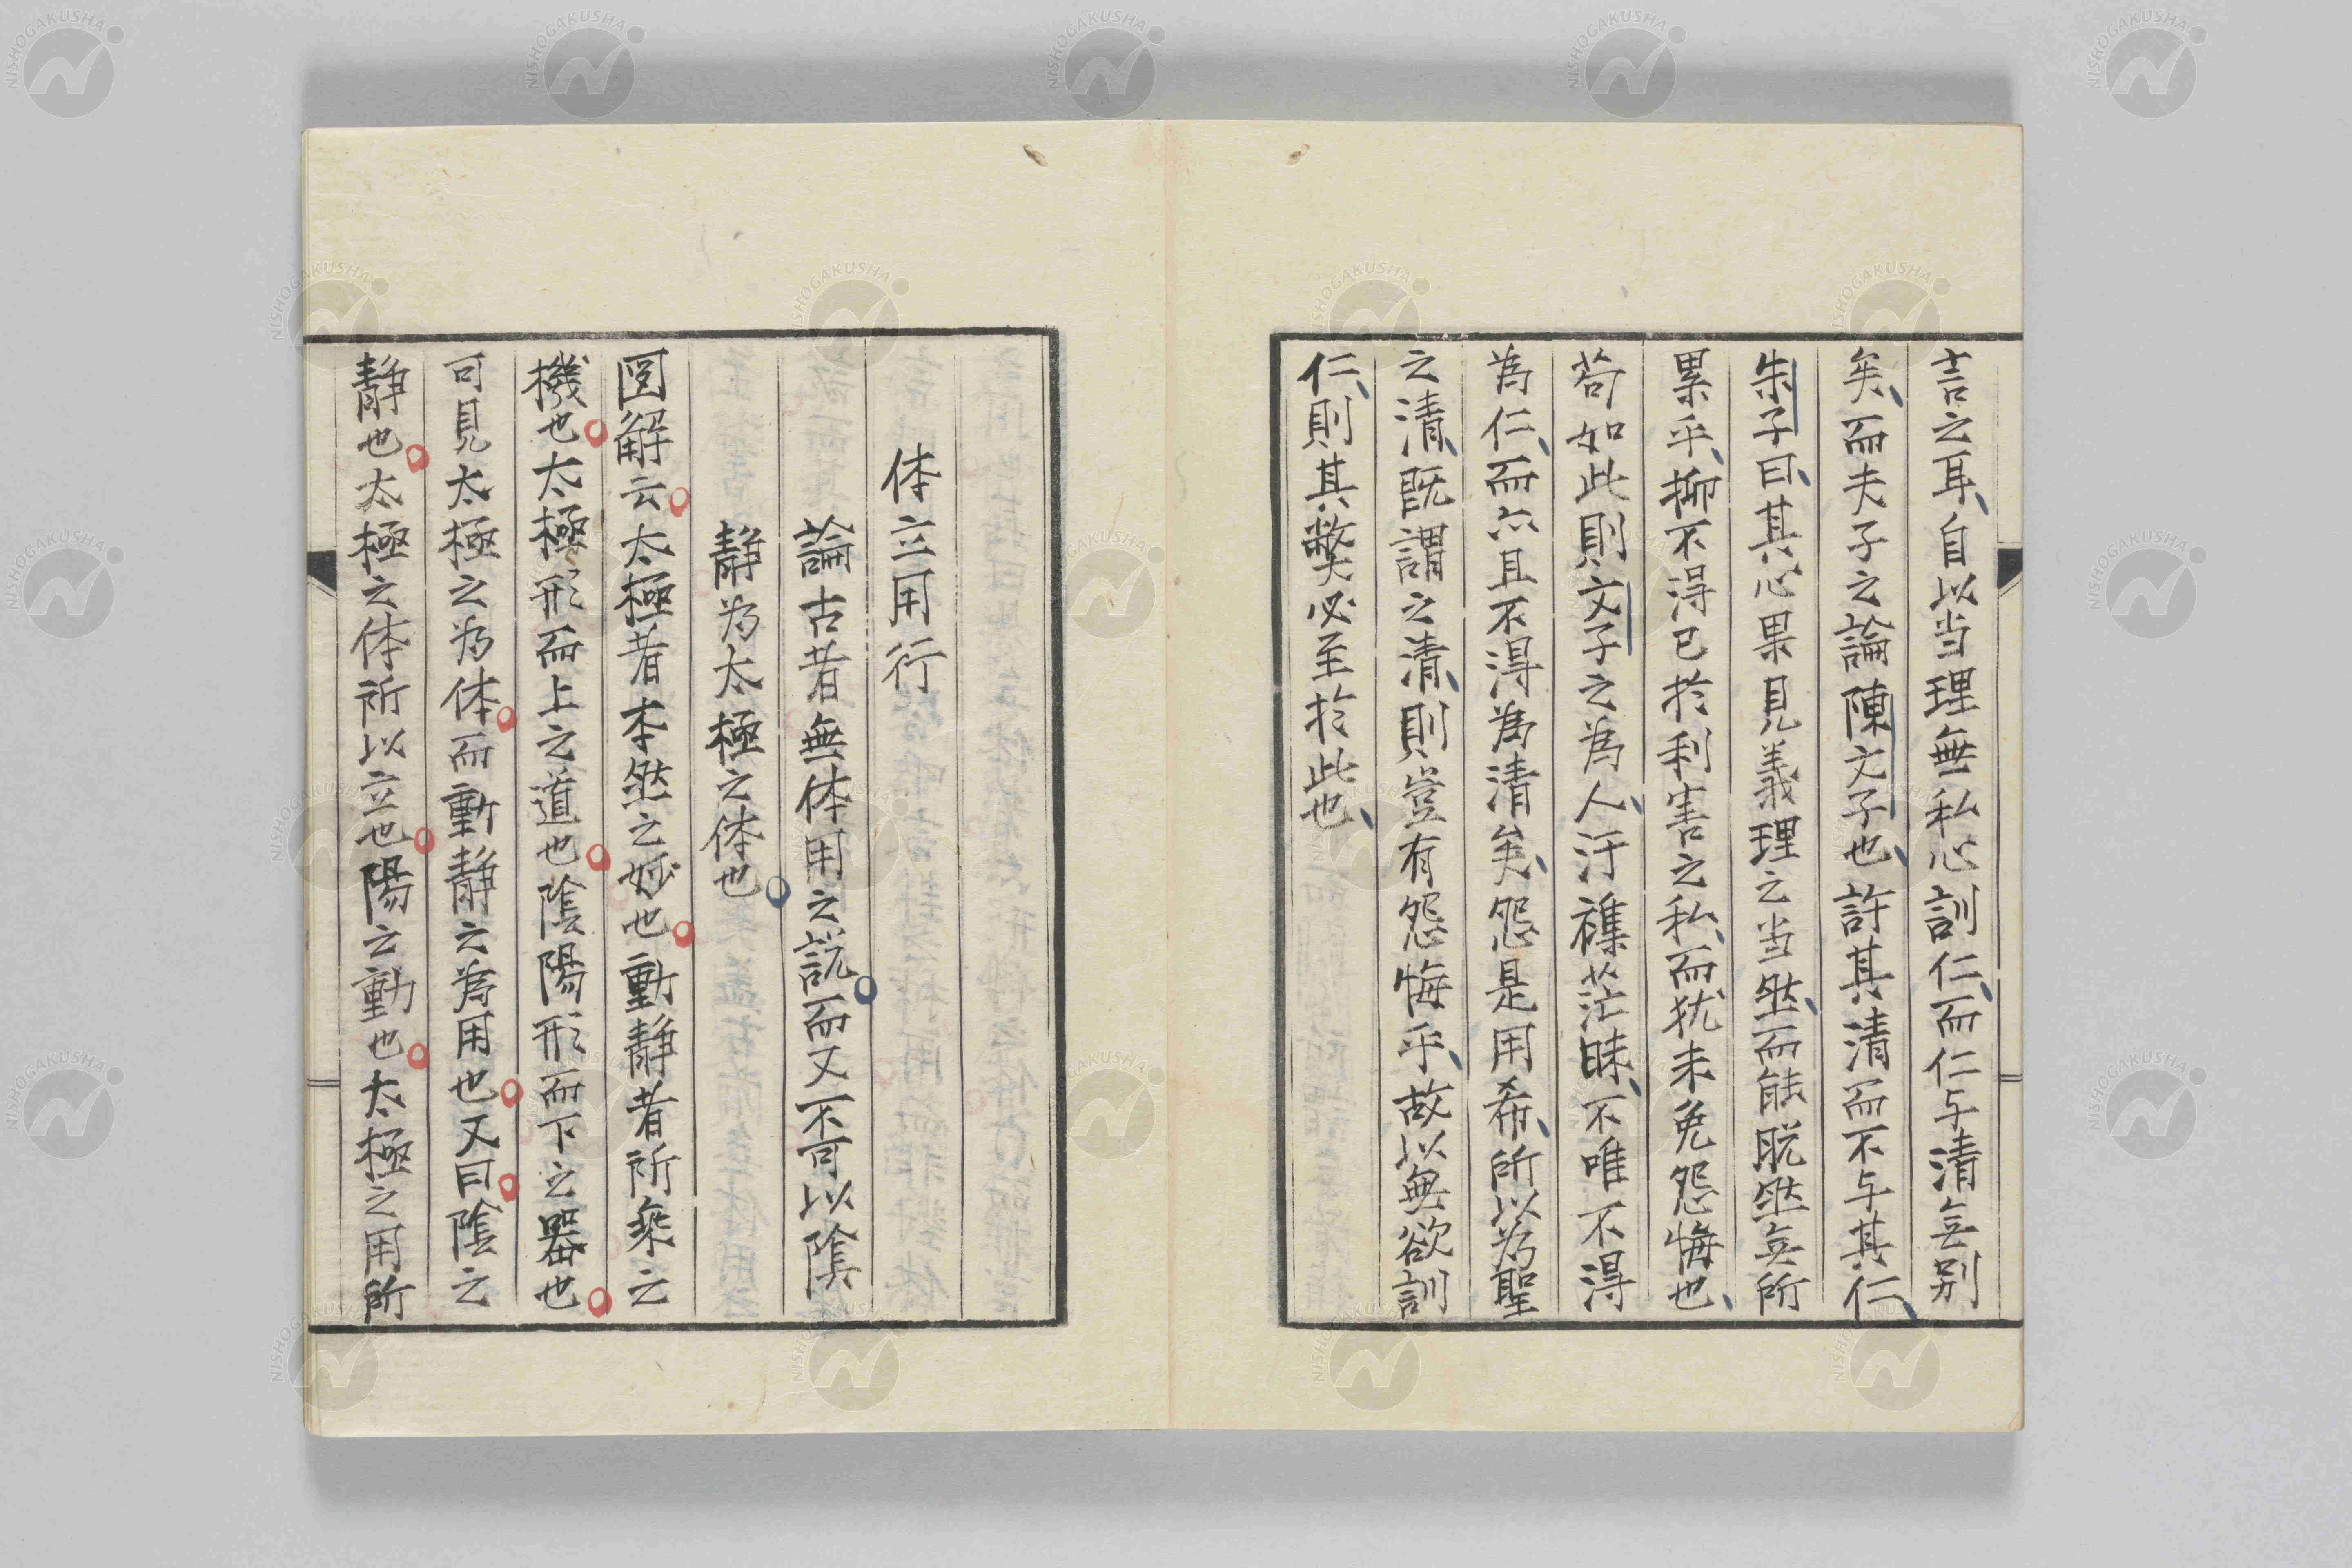 言之耳、自以当理無私心訓仁、而仁与清無別
矣、而夫子之論陳文子也、許其清而不与其仁、
朱子曰、其心果見義理之当然、而能脱然無所
累乎、抑不得已於利害之私、而犹未免怨悔也、
苟如此則文子之為人、汙襍茫昧、不唯不得
為仁、而亦且不得為清矣、怨是用希、所以為聖
之清、既謂之清、則豈有怨悔乎、故以無欲訓
仁、則其弊必至於此也、
体立用行
論古昔無体用之説而又不可以陰
静為太極之体也
図解云太極者本然之妙也動静者所乗之
機也太極形而上之道也陰陽形而下之器也
可見太極之為体而動静之為用也又曰陰之
静也太極之体所以立也陽之動也太極之用所
NISHOGAKUSHA